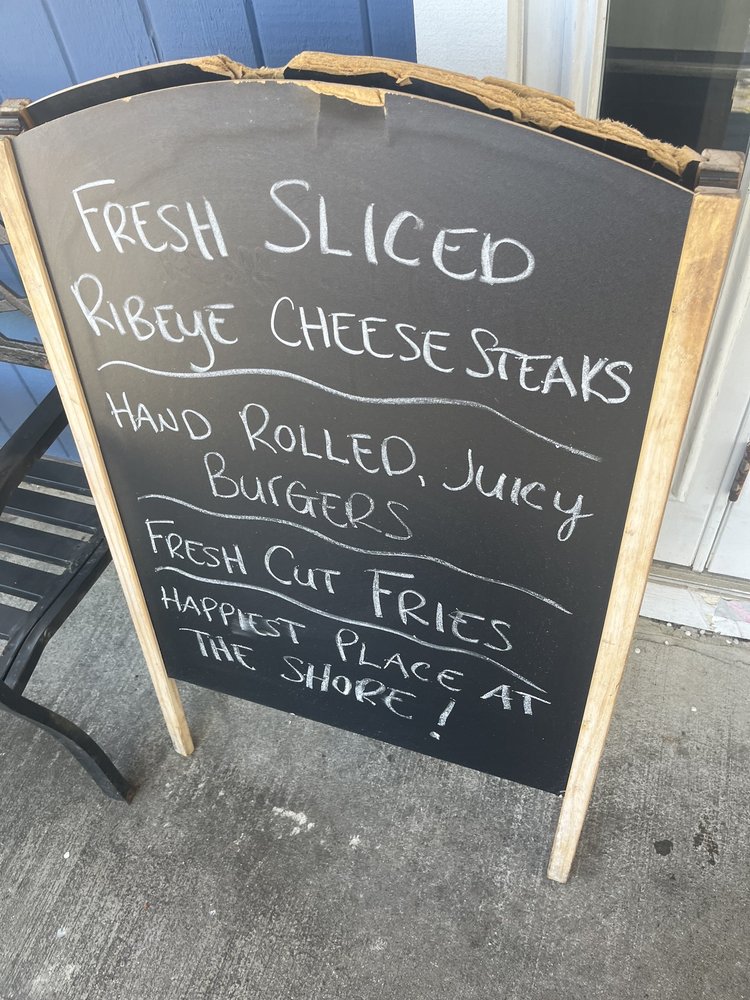 FRESH SLICED
RIBEYE CHEESESTEAKS
HAND ROLLED, JUICY
BURGERS
FRESH CUT FRIES
HAPPIEST PLACE AT
THE SHORE!